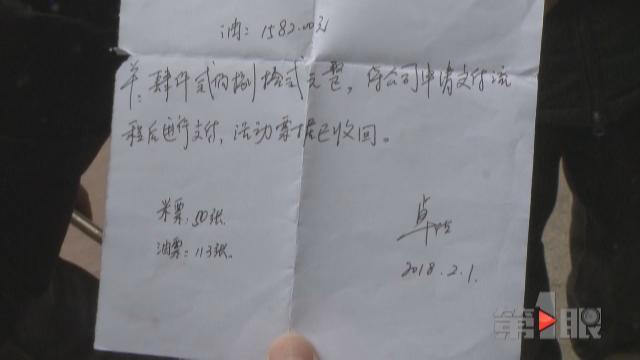 油：1582.00元
肆仟贰佰捌拾贰元整，待公司申请支付流
程后进行支付，活动票据已收回。
米票：50张
油票：113张。
2018.2.1.
第1眼